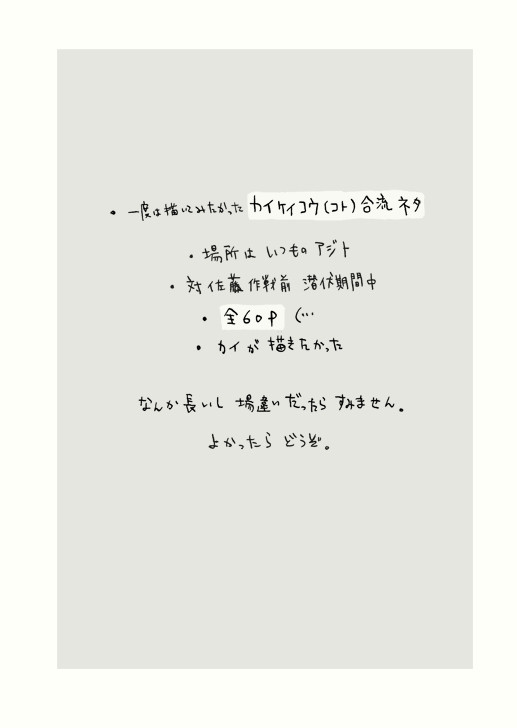 • 一度は描いてみたかった カイケイコウ(コト)合流 ネタ
• 場所は いつもの アジト
• 対佐藤作戦前 潜伏期間中
• 全60P (…
• カイが 描きたかった
なんか長いし 場違いだったら すみません。
よかったら どうぞ。